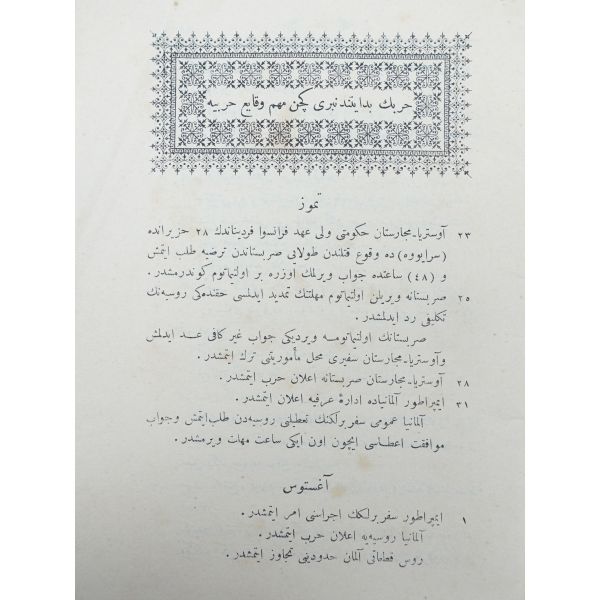 حربك بدايتندنبری كچن مهم وقايع حربيه
تموز
٢٣ آوستريا-مجارستان حكومتی ولی عهد فرانسوا فرديناندك ٢٨ حزيرانده
(سرايووه) ده وقوع قتلندن طولايی صربستاندن ترضيه طلب ايتمش
و (٤٨) ساعتده جواب ويرلمك اوزره بر اولتيماتوم كوندرمشدر.
٢٥ صربستانه ويريلن اولتيماتوم مهلتنك تمديد ايدلمسی حقنده‌كی روسيه‌نك
تكليفی رد ايدلمشدر.
صربستانك اولتيماتومه ويرديكی جواب غير كافی عد ايدلمش
وآوستريا-مجارستان سفيری محل مأموريتنی ترك ايتمشدر.
٢٨ آوستريا-مجارستان صربستانه اعلان حرب ايتمشدر.
٣١ ايمپراطور آلمانياده اداره‌ٔ عرفيه اعلان ايتمشدر.
آلمانيا عمومی سفربرلكك تعطيلنی روسيه‌دن طلب ايتمش وجواب
موافقت اعطاسی ايچون اون ايكی ساعت مهلت ويرمشدر.
آغستوس
١ ايمپراطور سفربرلكك اجراسنی امر ايتمشدر.
آلمانيا روسيه‌يه اعلان حرب ايتمشدر.
روس قطعاتی آلمان حدودينی تجاوز ايتمشدر.